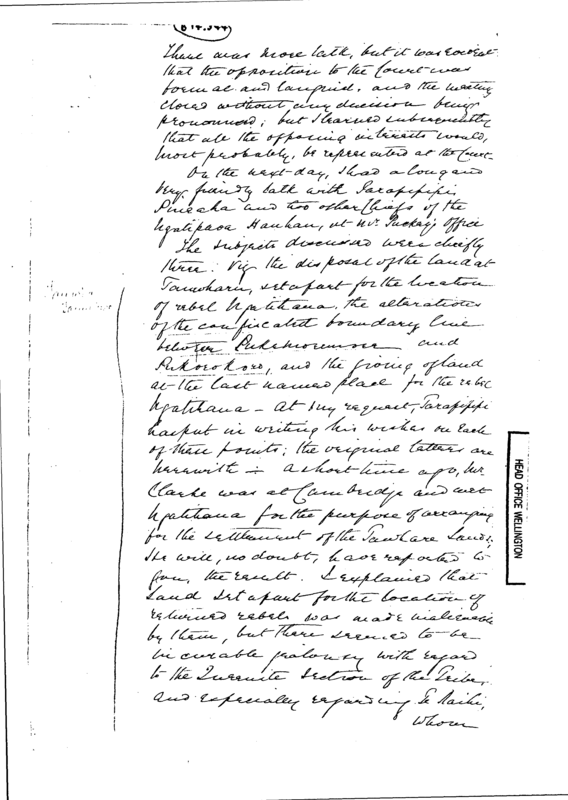 (B 14.344)
There was more talk, but it was evident
that the opposition to the Court was
formal and languid, and the meeting
closed without any decision being
pronounced; but I learned subsequently
that all the opposing interests would,
most probably, be represented at the Court.
On the next day, I had a long and
very friendly talk with Tarapipipi
and two other Chiefs of the
Ngatipaoa Hauhau, at Mr. Puckey's Office
The subjects discussed were chiefly
three: Viz the disposal of the land at
set apart for the location
of rebel Ngatihaua, the alterations
of the confiscated boundary line
between Pukemoremore and
Pukorokoro, and the giving of land
at the last named place for the rebel
Ngatihaua — At my request, Tarapipipi
has put in writing his wishes on each
of these points; the original letters are
herewith — A short time ago, Mr
Clarke was at Cambridge and met
Ngatihaua for the purpose of arranging
for the settlement of the Tauwhare Lands.
He will, no doubt, have reported to
you, the result. I explained that
Land set apart for the location of
returned rebels was made inalienable
by them, but there seemed to be
incurable jealousy with regard
to the Queenite Section of the Tribe,
and especially regarding Te Raihi,
whom
HEAD OFFICE WELLINGTON